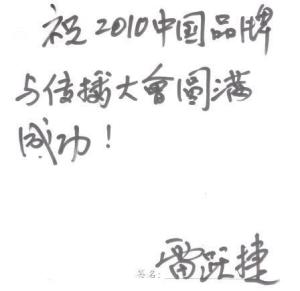 祝2010中国品牌
与传播大會圆满
成功！
签名：雷跃捷